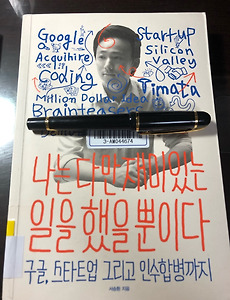 Google
Startup
Acquihire
Silicon
Valley
Coding
Timata
Million Dollar Idea
Brainteasers
3-AM044674
나는 다만 재미있는
일을 했을 뿐이다
구글, 스타트업 그리고 인수합병까지